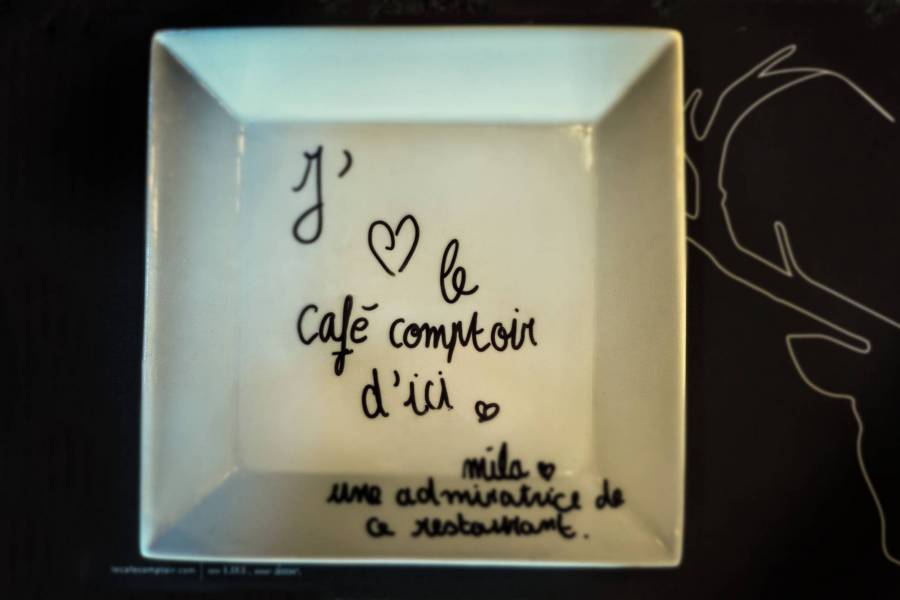 J'
♡ le
Café comptoir
d'ici ♡
mila ♥
une admiratrice de
ce restaurant.
lecafecomptoir.com